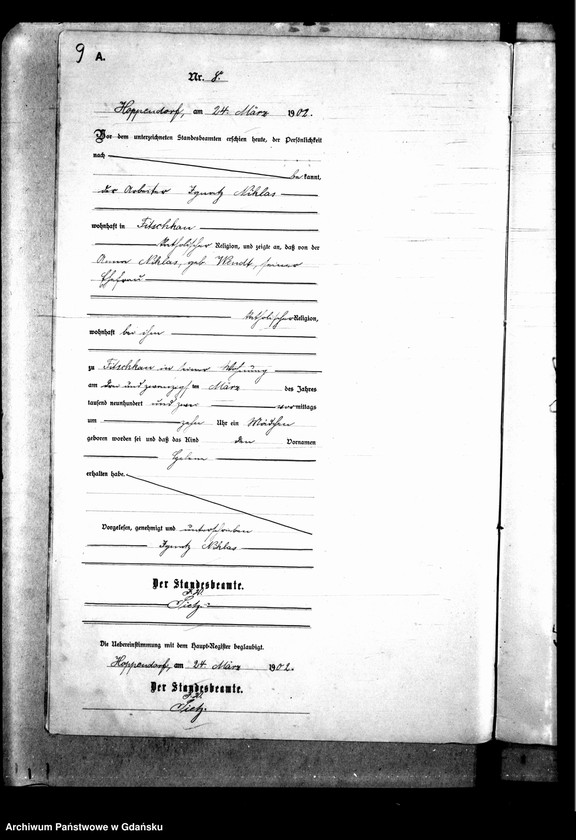 9 A.
Nr. 8.
Hoppendorf, am 24. März 1902.
Vor dem unterzeichneten Standesbeamten erschien heute, der Persönlichkeit
nach
bekannt,
der Arbeiter Ignatz Niklas
wohnhaft in Fitschkau
katholischer Religion, und zeigte an, daß von der
Anna Niklas, geb. Wendt, seiner
Ehefrau
katholischer Religion,
wohnhaft bei ihm
zu Fitschkau in seiner Wohnung
am und zwanzigsten März des Jahres
tausend neunhundert und zwei vormittags
um zehn Uhr ein Mädchen
geboren worden sei und daß das Kind den Vornamen
erhalten habe.
Vorgelesen, genehmigt und unterschrieben
Ignatz Niklas
Der Standesbeamte.
Tietz.
Die Uebereinstimmung mit dem Haupt-Register beglaubigt.
Hoppendorf, am 24. März 1902.
Der Standesbeamte.
Tietz.
Archiwum Państwowe w Gdańsku